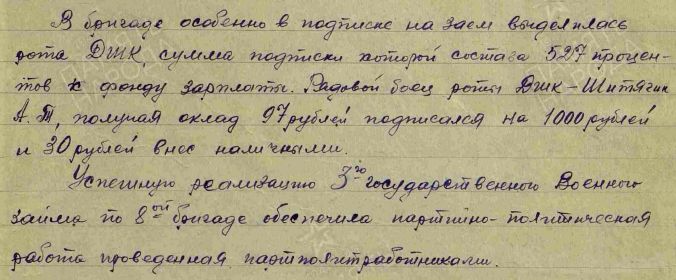 В бригаде особенно в подписке на заем выделилась
рота ДШК, сумма подписки которой состава 527 процен-
тов к фонду зарплаты. Рядовой боец роты ДШК - Шитягин
А.Т, получая оклад 97 рублей подписался на 1000 рублей
и 30 рублей внес наличными.
Успешную реализацию 3го государственного Военного
займа по 8ой бригаде обеспечила партийно-политическая
работа проведенная партполитработниками.